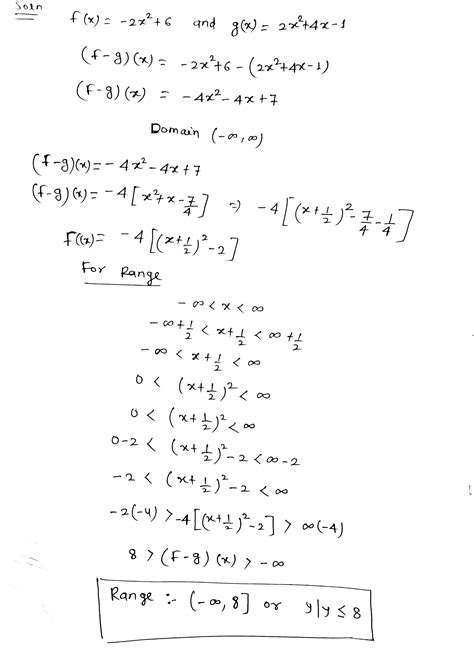 Soln
f(x) = -2x²+6 and g(x) = 2x²+4x-1
(f-g)(x) = -2x²+6 - (2x²+4x-1)
(f-g)(x) = -4x²-4x+7
Domain (-∞,∞)
(f-g)(x) = -4x²-4x+7
(f-g)(x) = -4[x²+x-7/4] ⇒ -4[(x+1/2)²-7/4-1/4]
f(x) = -4[(x+1/2)²-2]
For Range
-∞ < x < ∞
-∞+1/2 < x+1/2 < ∞+1/2
-∞ < x+1/2 < ∞
0 < (x+1/2)² < ∞
0 < (x+1/2)² < ∞
0-2 < (x+1/2)²-2 < ∞-2
-2 < (x+1/2)²-2 < ∞
-2(-4) > -4[(x+1/2)²-2] > ∞(-4)
8 > (f-g)(x) > -∞
Range :- (-∞,8] or y|y ≤ 8